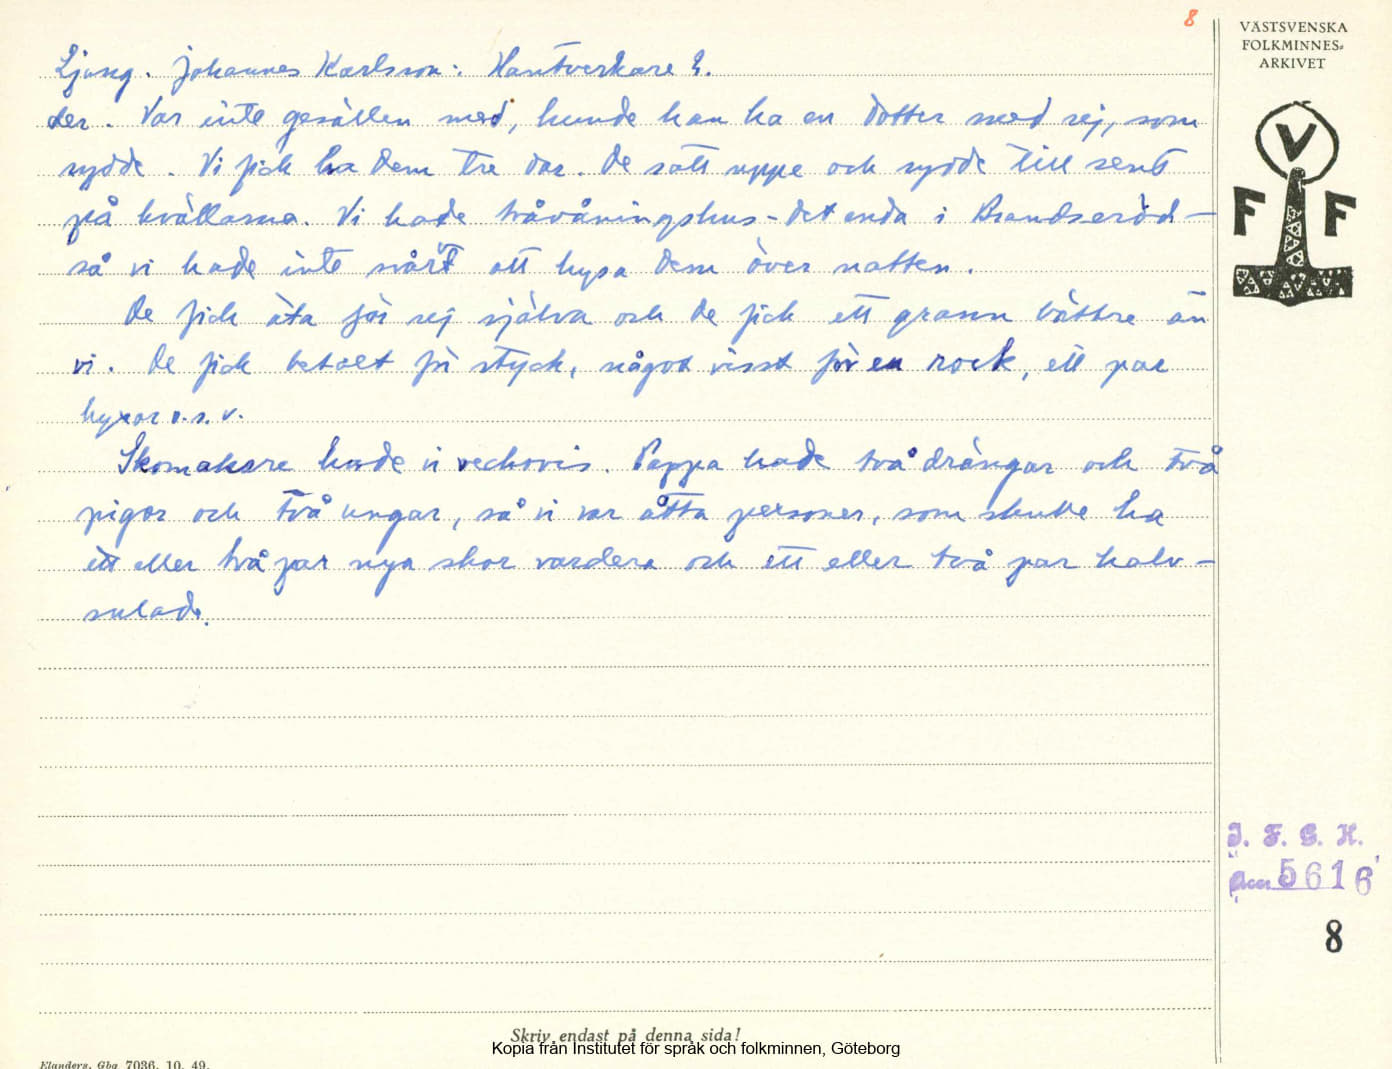 8
VÄSTSVENSKA
FOLKMINNES-
ARKIVET
V
F F
Ljung. Johannes Karlsson: Hantverkare 2.
der. Var inte gesällen med, kunde han ha en dotter med sej, som
sydde. Vi fick ha dem tre dar. De satt uppe och sydde till sent
på kvällarna. Vi hade tvåvåningshus - det enda i Brandseröd -
så vi hade inte svårt att hysa dem över natten.
De fick äta för sej själva och de fick ett grann bättre än
vi. De fick betalt pr styck, något visst för en rock, ett par
byxor o.s.v.
Skomakare hade vi veckovis. Pappa hade två drängar och två
pigor och två ungar, så vi var åtta personer, som skulle ha
ett eller två par nya skor vardera och ett eller två par halv-
sulade.
I. F. G. H.
Acc 5616
8
Skriv endast på denna sida!
Kopia från Institutet för språk och folkminnen, Göteborg
Elanders, Gbg 7036. 10. 49.